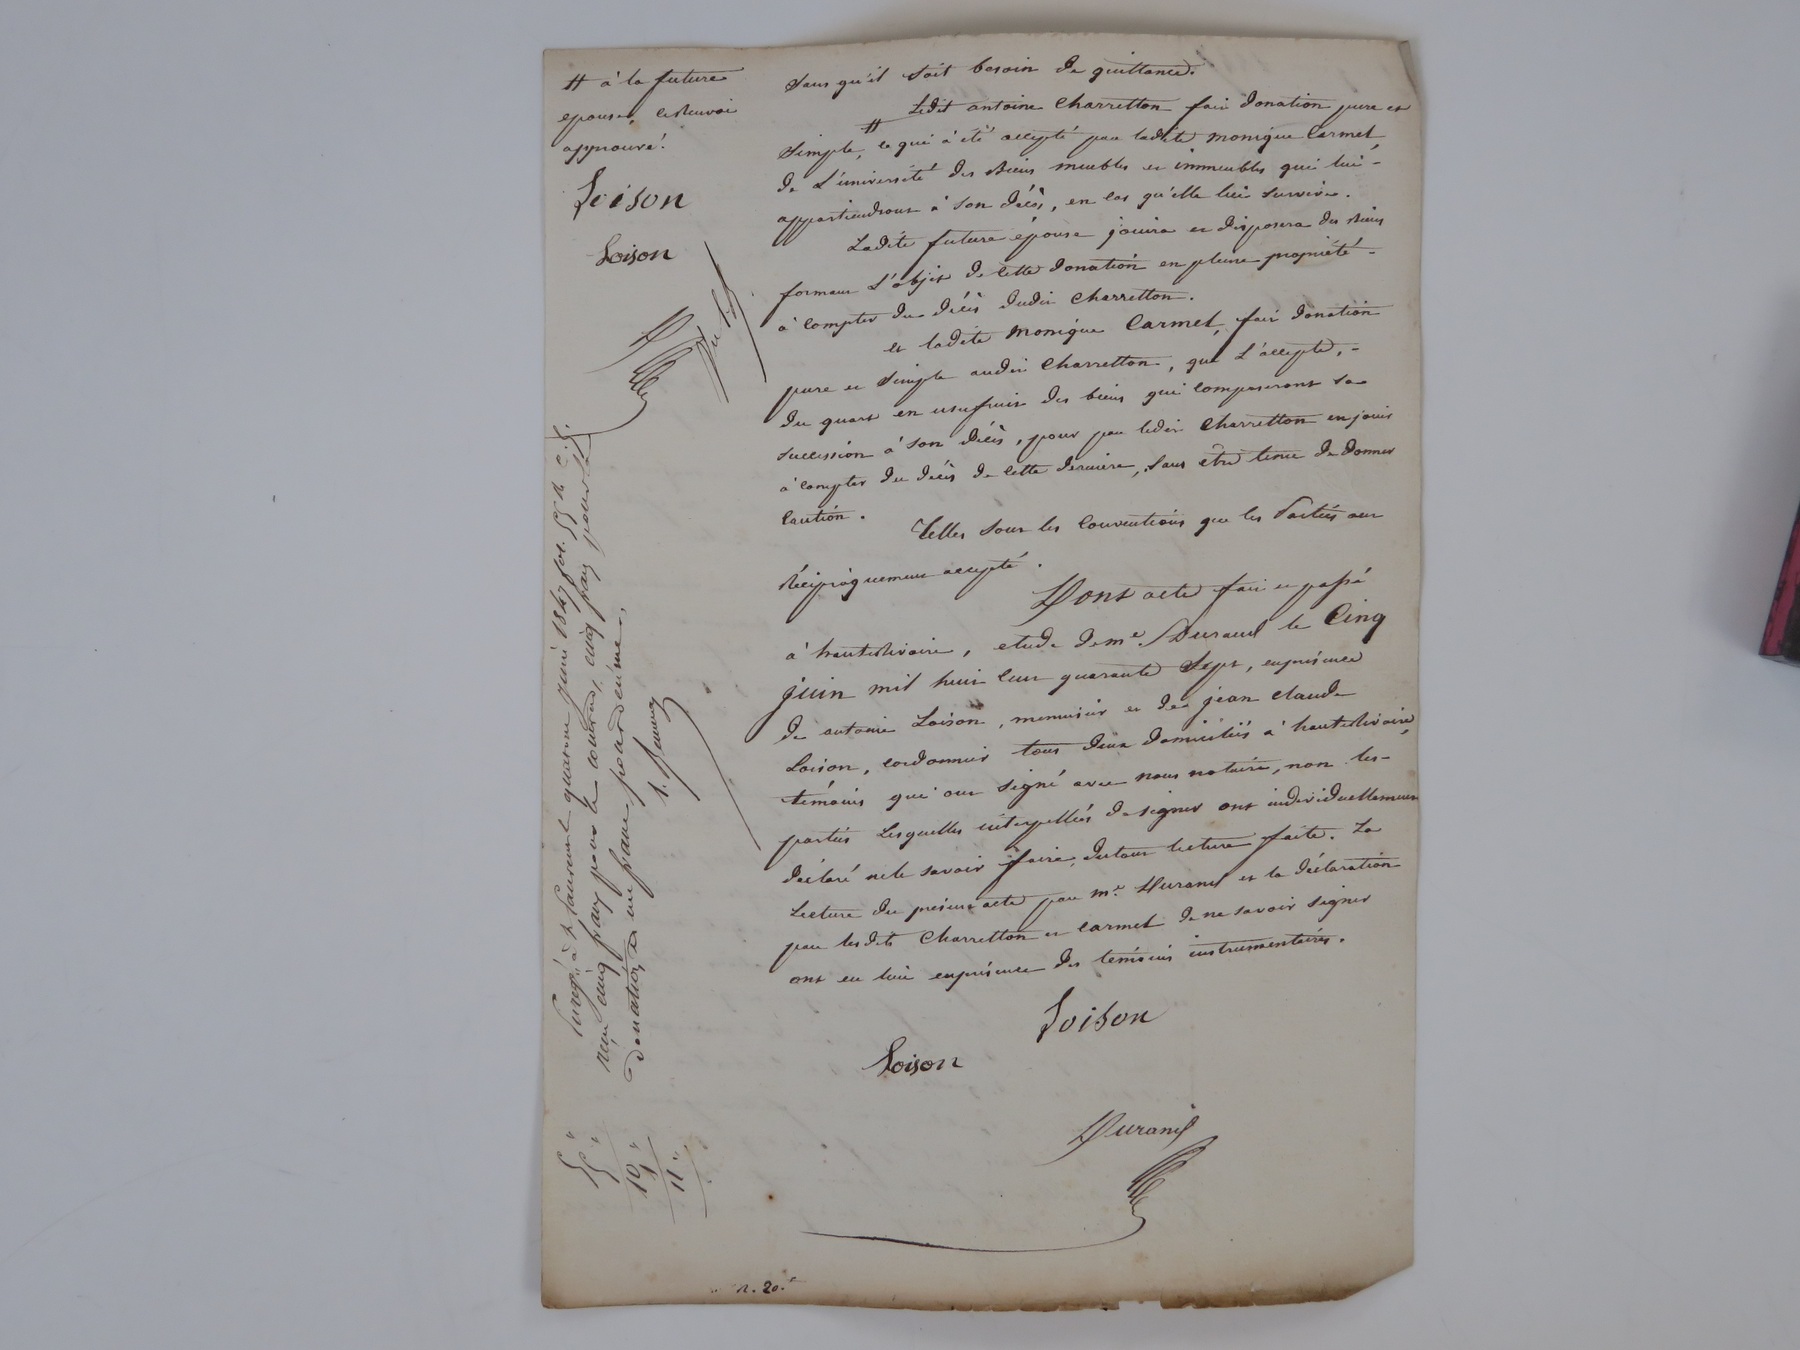 # à la future
épouse, cerenvoi
approuvé.
Loison
Loison
sans qu'il soit besoin de quittance.
Ledit antoine Charretton fait donation pure et
#
simple, ce qui à été accepté par ladite monique Carmet,
de L'université des biens meubles et immeubles qui lui -
appartiendront à son décès, en cas qu'elle lui survive.
Ladite future épouse jouira et disposera des biens
formant L'objet de cette donation en pleine propriété -
à compter du décès dudit Charretton.
et ladite monique Carmet, fait donation
pure et simple audit Charretton, qui L'accepte, -
du quart en usufruit des biens qui composeront sa
succession à son décès, pour par ledit Charretton en jouir
à compter du décès de cette dernière, sans être tenu de donner
caution.
Telles sont les conventions que les Parties ont
réciproquement accepté.
Dont acte fait et passé
à hauterivoire, etude de me. Durand le Cinq
juin mil huit cent quarante Sept, enprésence
de antoine Loison, menuisier et de jean claude
Loison, cordonnier tous deux domiciliés à hauterivoire,
témoins qui ont signé avec nous notaire, non les -
parties Lesquelles interpellées designer ont individuellement
déclaré nele savoir faire, detout lecture faite. La
Lecture du présent acte par me. Durand et la déclaration
par lesdits Charretton et Carmet de ne savoir signer
ont eu lieu enprésence des témoins instrumentaires.
Loison
Loison
Durand
Enregé. à St Laurent le quatorze juin 1847 fol. 55 Ro c. 8.
reçu cinq francs pour le contrat, cinq francs pour la
donation, et un franc pour décime.
5 "
5 "
10 "
1 "
11 "
n. 20.